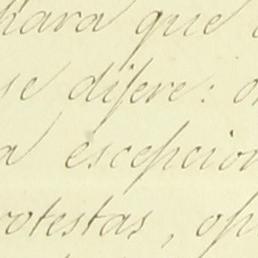 para que
se difere: o
a escepcion
rotestas, op